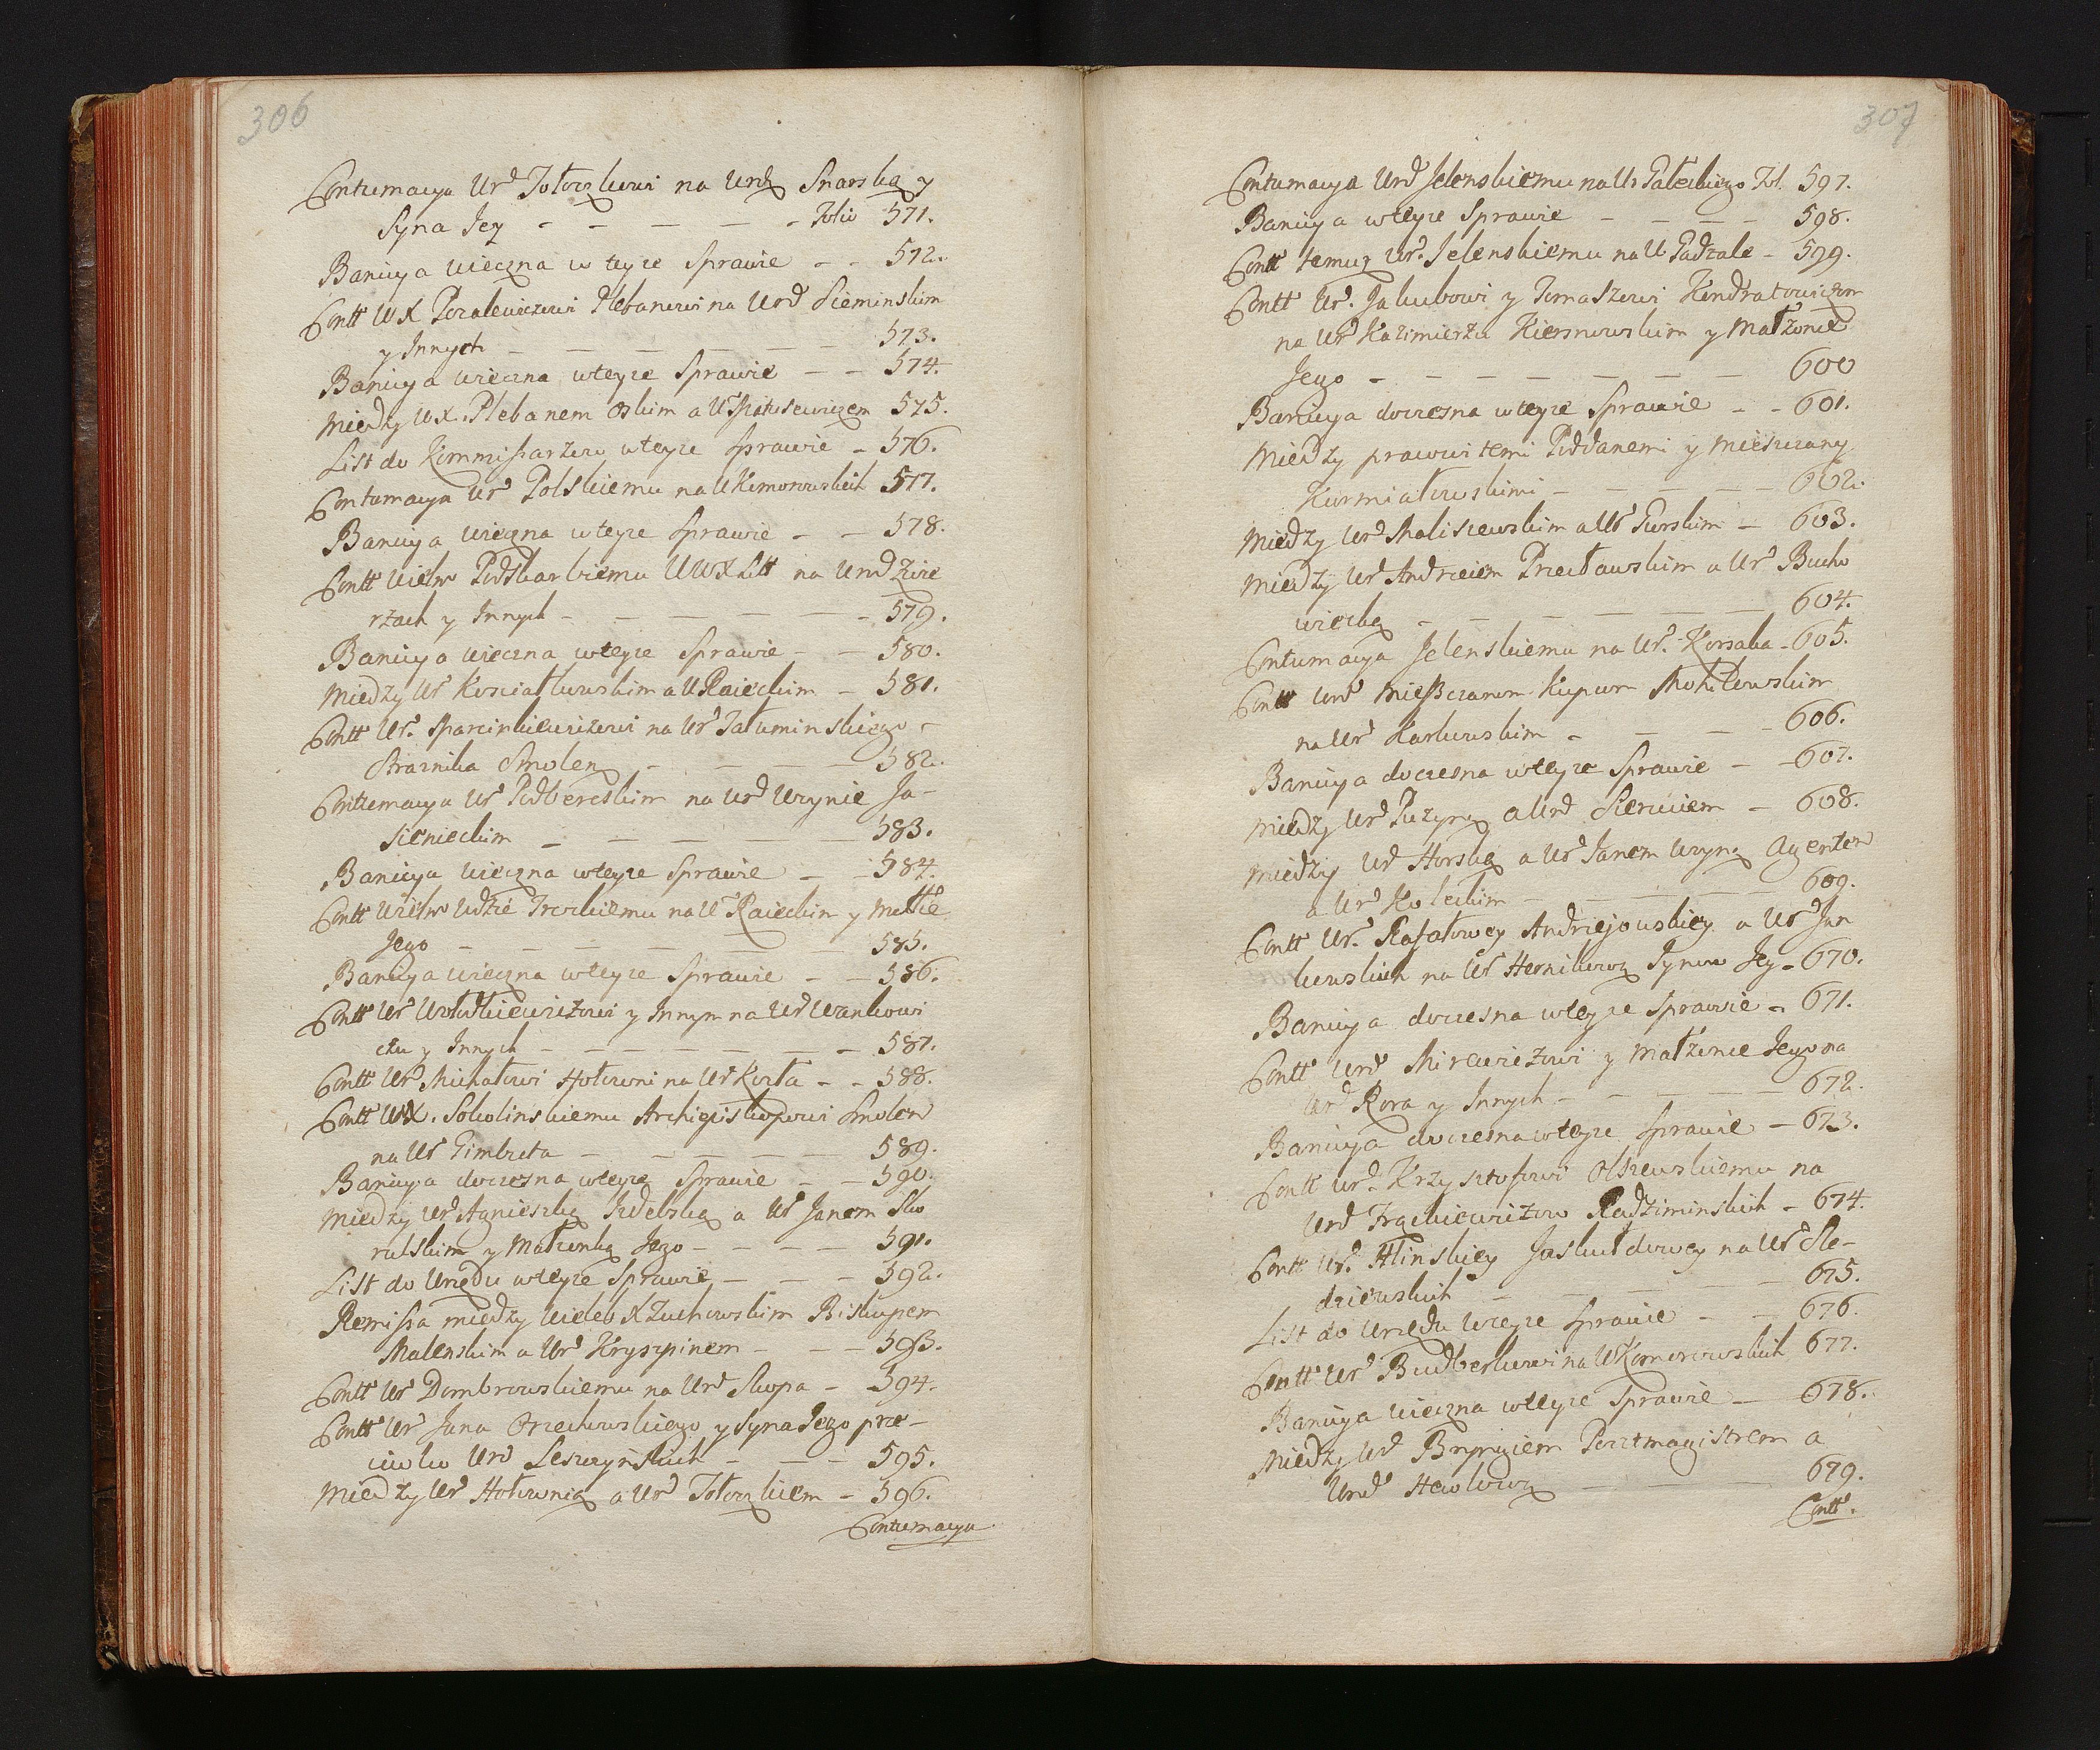 306
Contumacya Urd Tołoczkowi na Urdz Snarską y
Syna Jey - - - - - Folio 571.
Banicya wieczna w teyze Sprawie - - 572.
Contt WX Pozalewiczowi Plebanowi na Urd Sieminskim
y Innych - - - - - - 573.
Banicya wieczna wteyze Sprawie - - 574.
Między WX. Plebanem Oskim a Ur Matusewiczem 575.
List do Kommissarzow wteyze sprawie - 576.
Contumacya Ur Polskiemu na U Komorowskich 577.
Banicya wieczna wteyze sprawie - - 578.
Contt Wielm Podskarbiemu WWXLitt na Urd Zwie
rzach y Innych - - - - - 579.
Banicya wieczna wteyze Sprawie - - 580.
Między Ur Kosciałkowskim a U Raieckim - 581.
Contt Ur. Marcinkiewiczowi na Ur Jałuminskiego -
Straznika Smolen - - - - 582.
Contumacya Ur Podbereskim na Urd Wrynie Ja-
sieneckim - - - - - 583.
Banicya wieczna wteyze Sprawie - - 584.
Contt Wielm Wdzie Trockiemu na U Raieckim y Małce
Jego - - - - - - 585.
Banicya wieczna wteyze Sprawie - - 586.
Contt Ur Wołodkiewiczowi y Innym na Ur Wankowi
czu y Innych - - - - - - 587.
Contt Ur Michałowi Hołowni na Ur Korla - - 588.
Contt WX. Sokolinskiemu Archiepiskopowi Smolen
na Ur Gimbuta - - - - - 589.
Banicya doczesna wteyze Sprawie - - 590.
Między Ur Agnieszką Izdebską a Ur Janem Sko
rulskim y Małzonką Jego - - - - 591.
List do Urzędu wteyze Sprawie - - - 592.
Remissa między Wieleb X Zuchowskim Biskupem
Malenskim a Ur Kryszpinem - - - 593.
Contt Ur Dombrowskiemu na Urd Skopa - 594.
Contt Ur Jana Orzechowskiego y Syna Jego prze-
ciwko Urd Leszczynskich - - - 595.
Między Ur Hołownią a Ur Tołoczkiem - 596.
Contumacya
307
Contumacya Urd Jelenskiemu na Ur Pałeckiego Fol. 597.
Banicya wteyze Sprawie - - - - 598.
Contt temuz Ur. Jelenskiemu na U. Padzale - 599.
Contt Ur. Jakubowi y Tomaszowi Kondratowiczom
na Ur Kazimierzu Kiersnowskim y Małzonce
Jego - - - - - - - 600
Banicya doczesna wteyze Sprawie - - 601.
Między prawowitemi Poddanemi y Mieszczany
Kormiałowskimi - - - - - 602.
Między Ur Maliszewskim a Ur Gurskim - 603.
Między Ur Andrzeiem Przecławskim a Ur Bucho
wiecką - - - - - - 604.
Contumacya Jelenskiemu na Ur. Korsaka - 605.
Contt Urd Mieszczanom Kupcom Mohilowskim
na Ur Karkowskim - - - - 606.
Banicya doczesna wteyze Sprawie - - 607.
Między Ur Puzyną a Urd Siencem - 608.
Między Ur Horską a Ur Janem Wryną Agentem
a Ur Koleckim - - - - 609.
Contt Ur. Rafałowey Andrzejowskiey a Ur Jan
kowskich na Ur Hornikową Synow Jey - 670.
Banicya doczesna wteyze Sprawie - 671.
Contt Urd Mirewiczowi y Małzonce Jego na
Urd Kora y Innych - - - - 672.
Banicya doczesna wteyze sprawie - 673.
Contt Ur. Krzysztofowi Olszewskiemu na
Urd Frąckiewiczow Radziminskich - 674.
Contt Ur. Hlinskiey Jaskołdowey na Ur Sle-
dziewskich - - - - 675.
List do Urzędu wteyze sprawie - - 676.
Contt Ur Budberkowi na U Komorowskich 677.
Banicya wieczna wteyze Sprawie - 678.
Między Ur Bryngiem Pocztmagistrem a
Urd Hewlową - - - 679.
Contt.